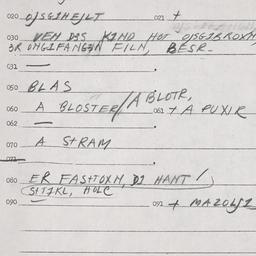 020 OJSGIHEJLT 021 +
030 VEN DOS KIND HOT OJSGIBROXN,
3R ONGIFANGEN FILN, BESR-
031 —
050 BLAS
060 A BLOSTER/A BLOTR, 061 + A PUXIR
062 —
070 A STRAM
071
080 ER FASHTOXN, DI HANT!
SITIKL, HOLC
090 — 091 + MAZOLJI